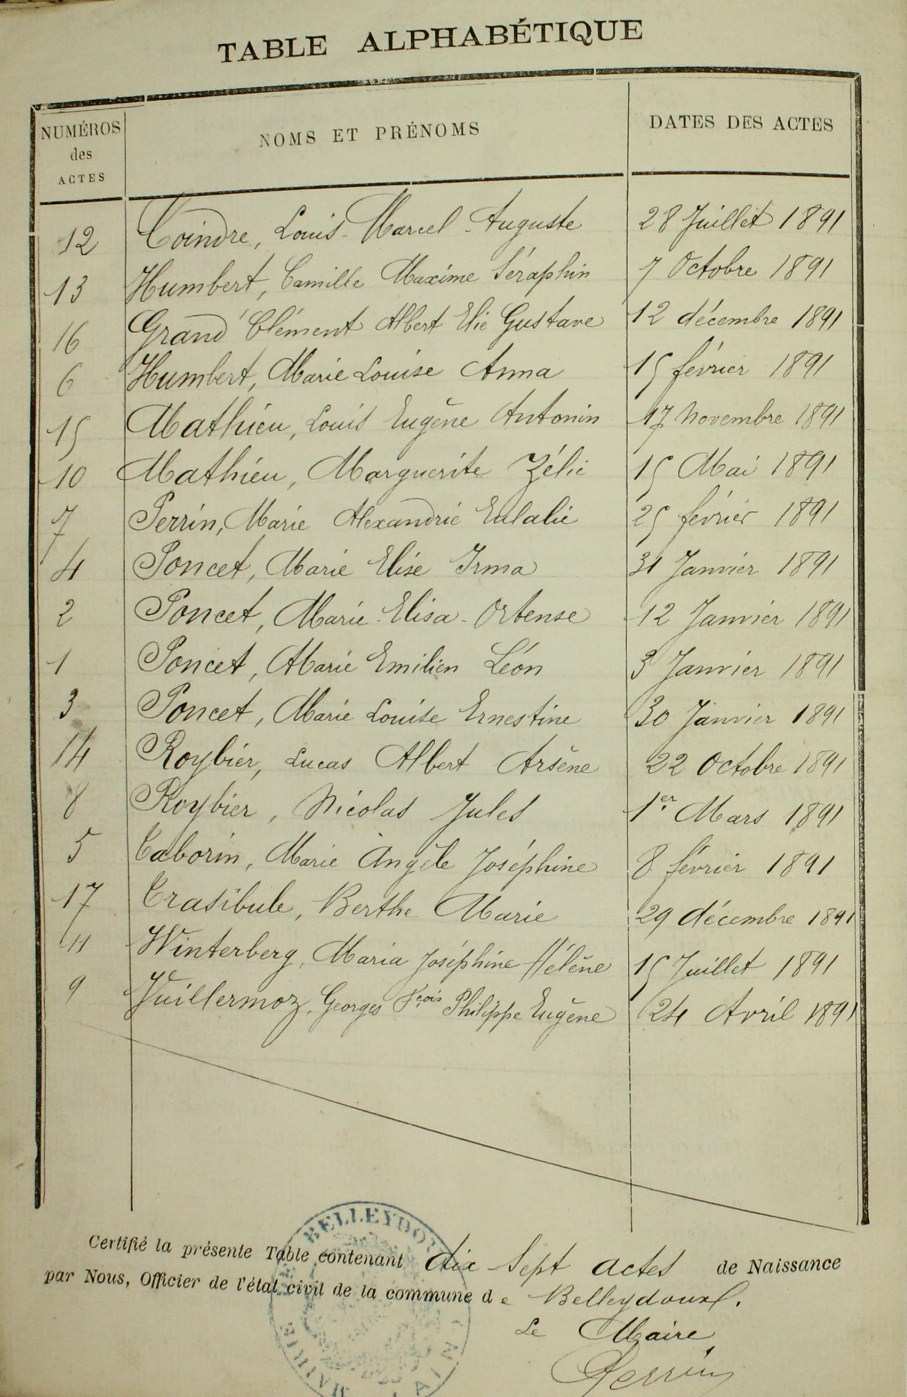 TABLE ALPHABÉTIQUE
NUMÉROS des ACTES
NOMS ET PRÉNOMS
DATES DES ACTES
12 Coindre, Louis-Marcel-Auguste 28 Juillet 1891
13 Humbert, Camille Maxime Séraphin 7 Octobre 1891
16 Grand Clément Albert Elie Gustave 12 décembre 1891
6 Humbert, Marie Louise Anna 15 février 1891
15 Mathieu, Louis Eugène Antonin 17 Novembre 1891
10 Mathieu, Marguerite Zélie 15 Mai 1891
7 Perrin, Marie Alexandrie Eulalie 25 février 1891
4 Poncet, Marie Elise Irma 31 Janvier 1891
2 Poncet, Marie-Elisa-Ortense 12 Janvier 1891
1 Poncet, Marie Emilien Léon 3 Janvier 1891
3 Poncet, Marie Louise Ernestine 30 Janvier 1891
14 Roybier, Lucas Albert Arsène 22 Octobre 1891
8 Roybier, Nicolas Jules 1er Mars 1891
5 Taborin, Marie Angèle Joséphine 8 février 1891
17 Trasibule, Berthe Marie 29 décembre 1891
11 Winterberg, Maria Joséphine Hélène 15 Juillet 1891
9 Vuillermoz, Georges Frois Philippe Eugène 24 Avril 1891
Certifié la présente Table contenant dix Sept actes de Naissance
par Nous, Officier de l'état civil de la commune de Belleydoux.
Le Maire
Perrin
MAIRIE DE BELLEYDOUX
AIN